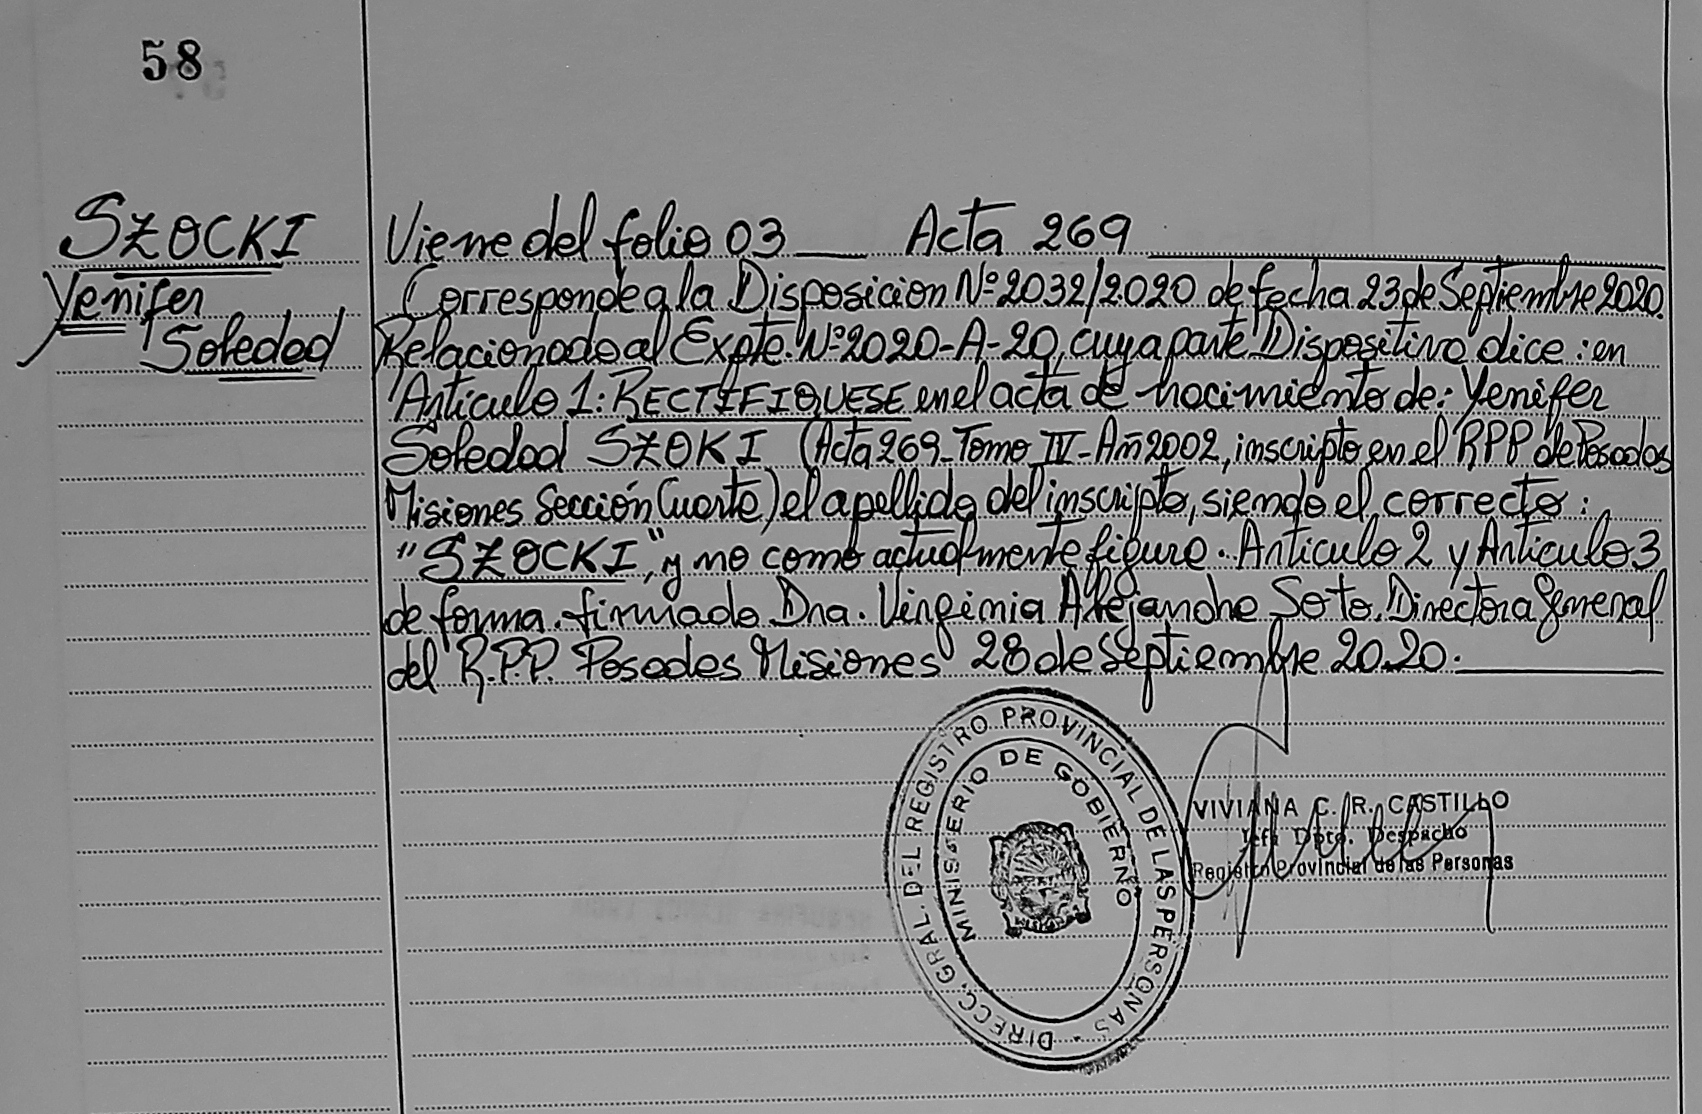 58
SZOCKI
Yenifer
Soledad
Viene del folio 03 Acta 269
Corresponde a la Disposicion Nº 2032/2020 de fecha 23 de Septiembre 2020.
Relacionado al Expte. Nº 2020-A-20, cuya parte Dispositiva dice: en
Articulo 1: RECTIFIQUESE en el acta de nacimiento de: Yenifer
Soledad SZOKI (Acta 269_Tomo IV-Año 2002, inscripto en el RPP de Posadas
Misiones Sección Cuarta) el apellido del inscripto, siendo el correcto:
"SZOCKI", y no como actualmente figura. Articulo 2 y Articulo 3
de forma. firmado Dra. Virginia Alejandra Soto. Directora General
del R.P.P. Posadas Misiones 28 de Septiembre 2020.
DIRECC. GRAL. DEL REGISTRO PROVINCIAL DE LAS PERSONAS
MINISTERIO DE GOBIERNO
VIVIANA C. R. CASTILLO
Jefa Dpto. Despacho
Registro Provincial de las Personas